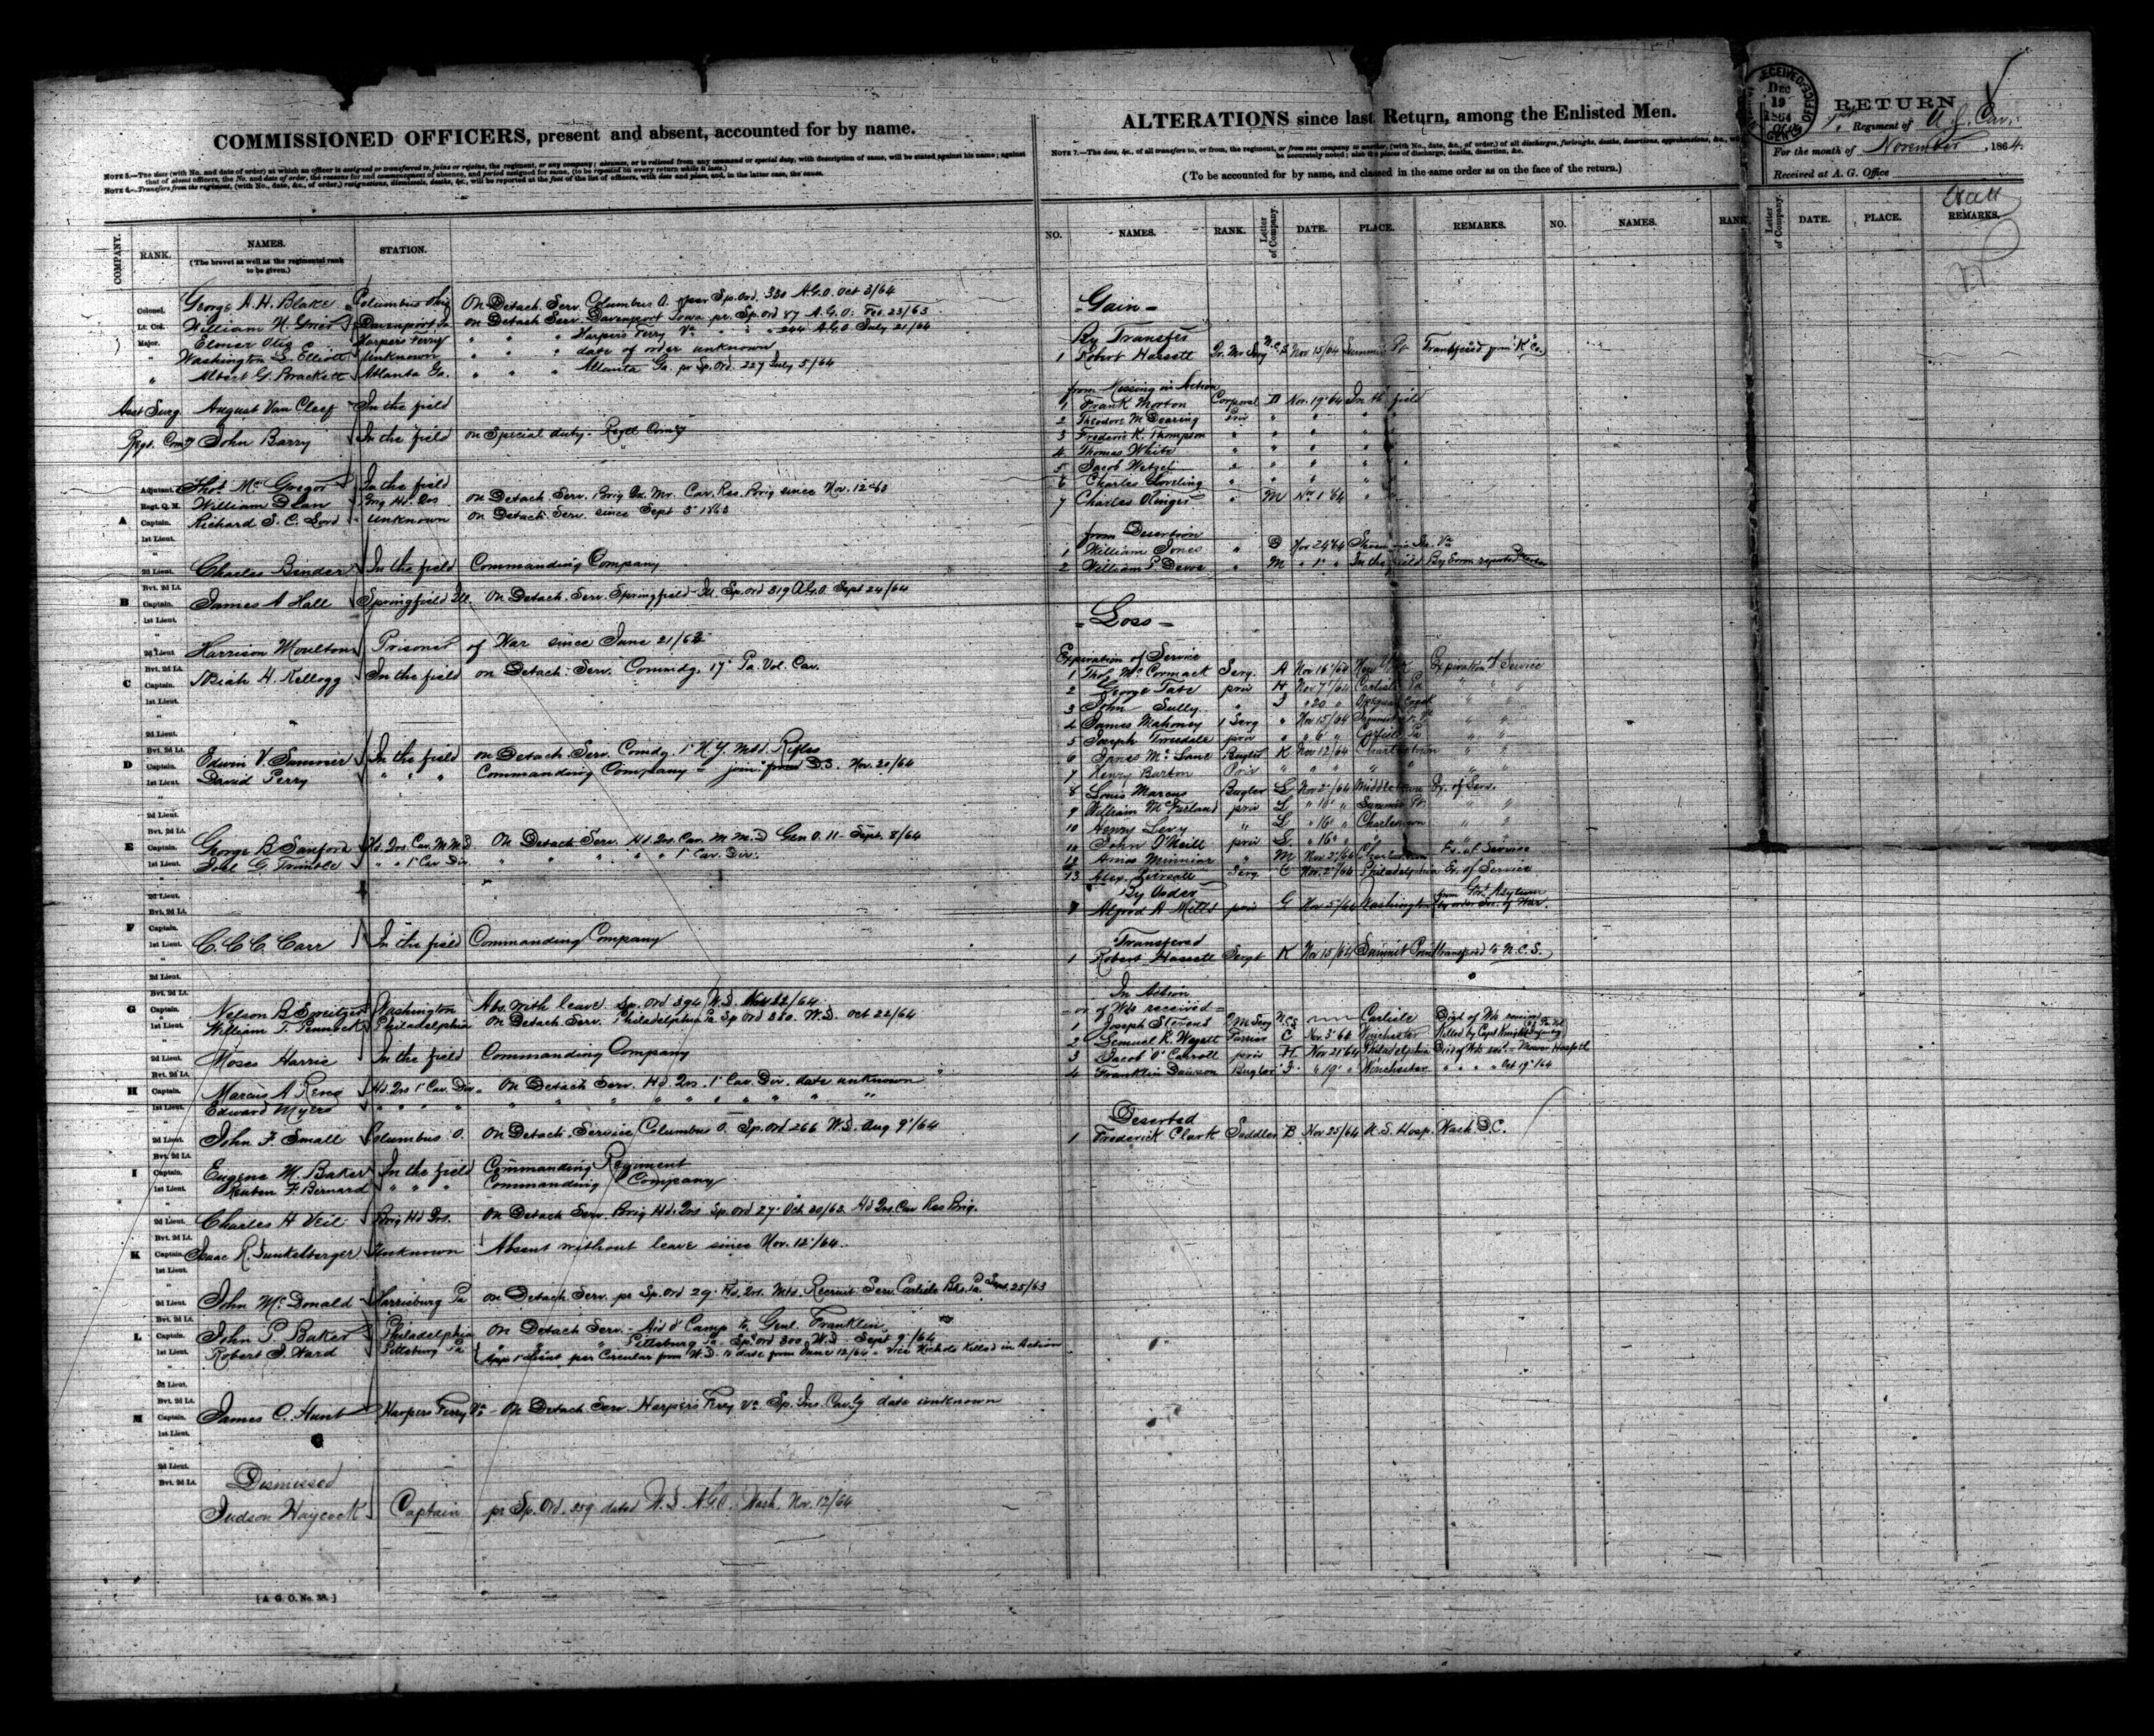 COMMISSIONED OFFICERS, present and absent, accounted for by name.
NOTE 5.—The date (with No. and date of order) at which an officer is assigned or transferred to, joins or rejoins, the regiment, or any company; absence, or is relieved from any command or special duty, with description of same, will be stated against his name; against
that of absent officers, the No. and date of order, the reasons for and commencement of absence, and period assigned for same, (to be repeated on every return while it lasts.)
NOTE 6.—Transfers from the regiment, (with No., date, &c., of order,) resignations, dismissals, deaths, &c., will be reported at the foot of the list of officers, with date and place, and, in the latter case, the cause.
COMPANY. RANK. NAMES. STATION.
(The brevet as well as the regimental rank to be given.)
Colonel. George A. H. Blake Columbus Ohio On Detach. Serv. Columbus O. per Sp. Ord. 330 A.G.O. Oct 3/64
Lt. Col. William N. Grier Davenport Ia on Detach Serv. Davenport Iowa pr. Sp. Ord 87 A.G.O. Feb. 23/63
Major. Elmer Otis Harpers Ferry " " " Harpers Ferry Va " " " 244 A.G.O July 21/64
" Washington L. Elliott Unknown " " " date of order unknown
" Albert G. Brackett Atlanta Ga. " " " Atlanta Ga. pr Sp. Ord. 227 July 5/64
Asst Surg. August Van Cleef In the field
Regt. Com'y John Barry In the field on Special duty - Regtl Com'y
Adjutant. Thos. McGregor In the field
Regt. Q. M. William Dean Brig Hd. Qrs on Detach Serv. Brig Qr. Mr. Car. Res. Brig since Nov. 12 63
A Captain. Richard S. C. Lord Unknown on Detach. Serv. since Sept 3 1863
1st Lieut.
"
2d Lieut. Charles Bender In the field Commanding Company
Bvt. 2d Lt.
B Captain. James A Hall Springfield Ill. On Detach. Serv. Springfield Ill. Sp. Ord 319 A.G.O. Sept 24/64
1st Lieut.
"
2d Lieut. Harrison Moulton Prisoner of War since June 21/63
Bvt. 2d Lt.
C Captain. Josiah H. Kellogg In the field on Detach. Serv. Commdg. 17" Pa. Vol. Cav.
1st Lieut.
"
2d Lieut.
Bvt. 2d Lt.
D Captain. Edwin V. Sumner In the field on Detach. Serv. Comdg. 1" N.Y. Mtd. Rifles
1st Lieut. David Perry " " " Commanding Company - join from D.S. Nov. 20/64
"
2d Lieut.
Bvt. 2d Lt.
E Captain. George B Sanford Hd. Qrs Cav. M.M.D. On Detach Serv. Hd. Qrs. Cav. M M D Gen O. 11 - Sept. 8/64
1st Lieut. Joel G. Trimble " " 1" Cav Div. " " " " " 1" Cav. Div.
"
2d Lieut.
Bvt. 2d Lt.
F Captain.
1st Lieut. C. C. C. Carr In the field Commanding Company
"
2d Lieut.
Bvt. 2d Lt.
G Captain. Nelson B Sweitzer Washington Abs. with leave. Sp. Ord 394 W.D. Nov 12/64
1st Lieut. William T. Pennock Philadelphia on Detach Serv. Philadelphia Pa Sp Ord 360. W.D. Oct 22/64
2d Lieut. Moses Harris In the field Commanding Company
Bvt. 2d Lt.
H Captain. Marcus A Reno Hd. Qrs 1" Cav. Div. On Detach Serv. Hd Qrs. 1" Cav. Div. date unknown
1st Lieut. Edward Myers " " " " " " " " " " " " " "
2d Lieut. John F. Small Columbus O. On Detach. Service Columbus O. Sp. Ord 266 W.D. Aug 9"/64
Bvt. 2d Lt.
I Captain. Eugene M. Baker In the field Commanding Regiment
1st Lieut. Reuben F. Bernard " " " Commanding Company
"
2d Lieut. Charles H Veil Brig Hd Qrs. On Detach Serv. Brig Hd. Qrs Sp. Ord 27 Oct 20/63 Hd Qrs. Cav Res Brig.
Bvt. 2d Lt.
K Captain. Isaac R. Dunkelberger Unknown Absent without leave since Nov. 12/64.
1st Lieut.
"
2d Lieut. John McDonald Harrisburg Pa on Detach Serv. pr Sp. Ord 29 Hd. Qrs. Mtd. Recruit. Serv. Carlisle Bks. Pa. 25/63
Bvt. 2d Lt.
L Captain. John P. Baker Philadelphia On Detach Serv. - Aid d Camp to Genl. Franklin
1st Lieut. Robert J. Ward Pittsburg Pa " " " Pittsburg Pa. Sp. Ord 300 W.D. Sept 9"/64
" App 1" Lieut per Circular from W.D. to date from June 12/64 - vice Nichols Killed in Action
2d Lieut.
Bvt. 2d Lt.
M Captain. James C. Hunt Harpers Ferry Va - On Detach Serv. Harpers Ferry Va. Sp. Ins. Cav'y date unknown
1st Lieut.
"
2d Lieut.
Bvt. 2d Lt. Dismissed
Judson Haycock Captain pr Sp. Ord. 259 dated W.D. A.G.O. Wash. Nov. 12/64
[A. G. O. No. 28.]
ALTERATIONS since last Return, among the Enlisted Men.
NOTE 7.—The date, &c., of all transfers to, or from, the regiment, or from one company to another, (with No., date, &c., of order,) of all discharges, furloughs, deaths, desertions, apprehensions, &c., will
be accurately noted; also the places of discharge, deaths, desertion, &c.
(To be accounted for by name, and classed in the same order as on the face of the return.)
NO. NAMES. RANK. Letter of Company. DATE. PLACE. REMARKS. NO. NAMES. RANK. Letter of Company. DATE. PLACE. REMARKS.
- Gain -
By Transfer
1 Robert Hassett Qr. Mr. Serg N.C.S Nov 15/64 Summit Pt Transfered from "K" Co.
from Missing in Action
1 Frank Morton Corporal D Nov. 19 64 In th field
2 Theodore M Dearing Priv " " " " "
3 Frederic K. Thompson " " " " "
4 Thomas White " " " " "
5 Jacob Wetzel " " " " "
6 Charles Loveling " " " " "
7 Charles Olinger " M Nov 1 64 " "
from Desertion
1 William Jones " B Nov 24 64 Va
2 William P Dewe " M " 1" " In the field By Error reported Deserter
- Loss -
Expiration of Service
1 Thos. McCormack Serg. A Nov 16"/64 New York Expiration of Service
2 George Tate priv H Nov 7"/64 Carlisle Pa " " "
3 John Sully " I " 20 " " " "
4 James Mahoney 1 Serg " Nov 15/64 Summit Pt " "
5 Joseph Tweedale priv " " 6 " Carlisle Pa " "
6 James McLane Bugler K Nov 12/64 Charlestown " "
7 Henry Burton Priv " " " " " " " "
8 Louis Marcus Bugler L Nov 2"/64 Middletown Ex. of Serv.
9 William McFarland priv L " 10" " Summit Pt. " "
10 Henry Levy " L " 16" " Charlestown " "
11 John O'Neill priv L " 16" " " " "
12 Amos Minniar " M Nov 2"/64 Charlestown Ex. of Service
13 Alex. Serg C Nov. 2"/64 Philadelphia Ex. of Service
By Order
1 Alfred A Mills priv G Nov 5"/64 Washington from Gov't Asylum by order Sec. of War.
Transfered
1 Robert Hassett Sergt K Nov 15/64 Summit Point transfered to N.C.S.
In Action
- or of Wds received -
1 Joseph Stevens QM Serg N.C.S Carlisle Died of Wds received
2 Samuel R. Farrier C Nov 3" 64 Winchester Killed by Capt Knight
3 Jacob O'Carroll priv H Nov 21 64 Philadelphia Died of Wds rec'd - Mower Hospitl
4 Franklin Dawson Bugler I " 19" " Winchester " " " " Oct 19"/64
Deserted
1 Frederick Clark Saddler B Nov 25/64 U.S. Hosp. Wash D.C.
RECEIVED
DEC
19
1864
RETURN
Of the 1st Regiment of U.S. Cav.
For the month of November, 1864.
Received at A. G. Office